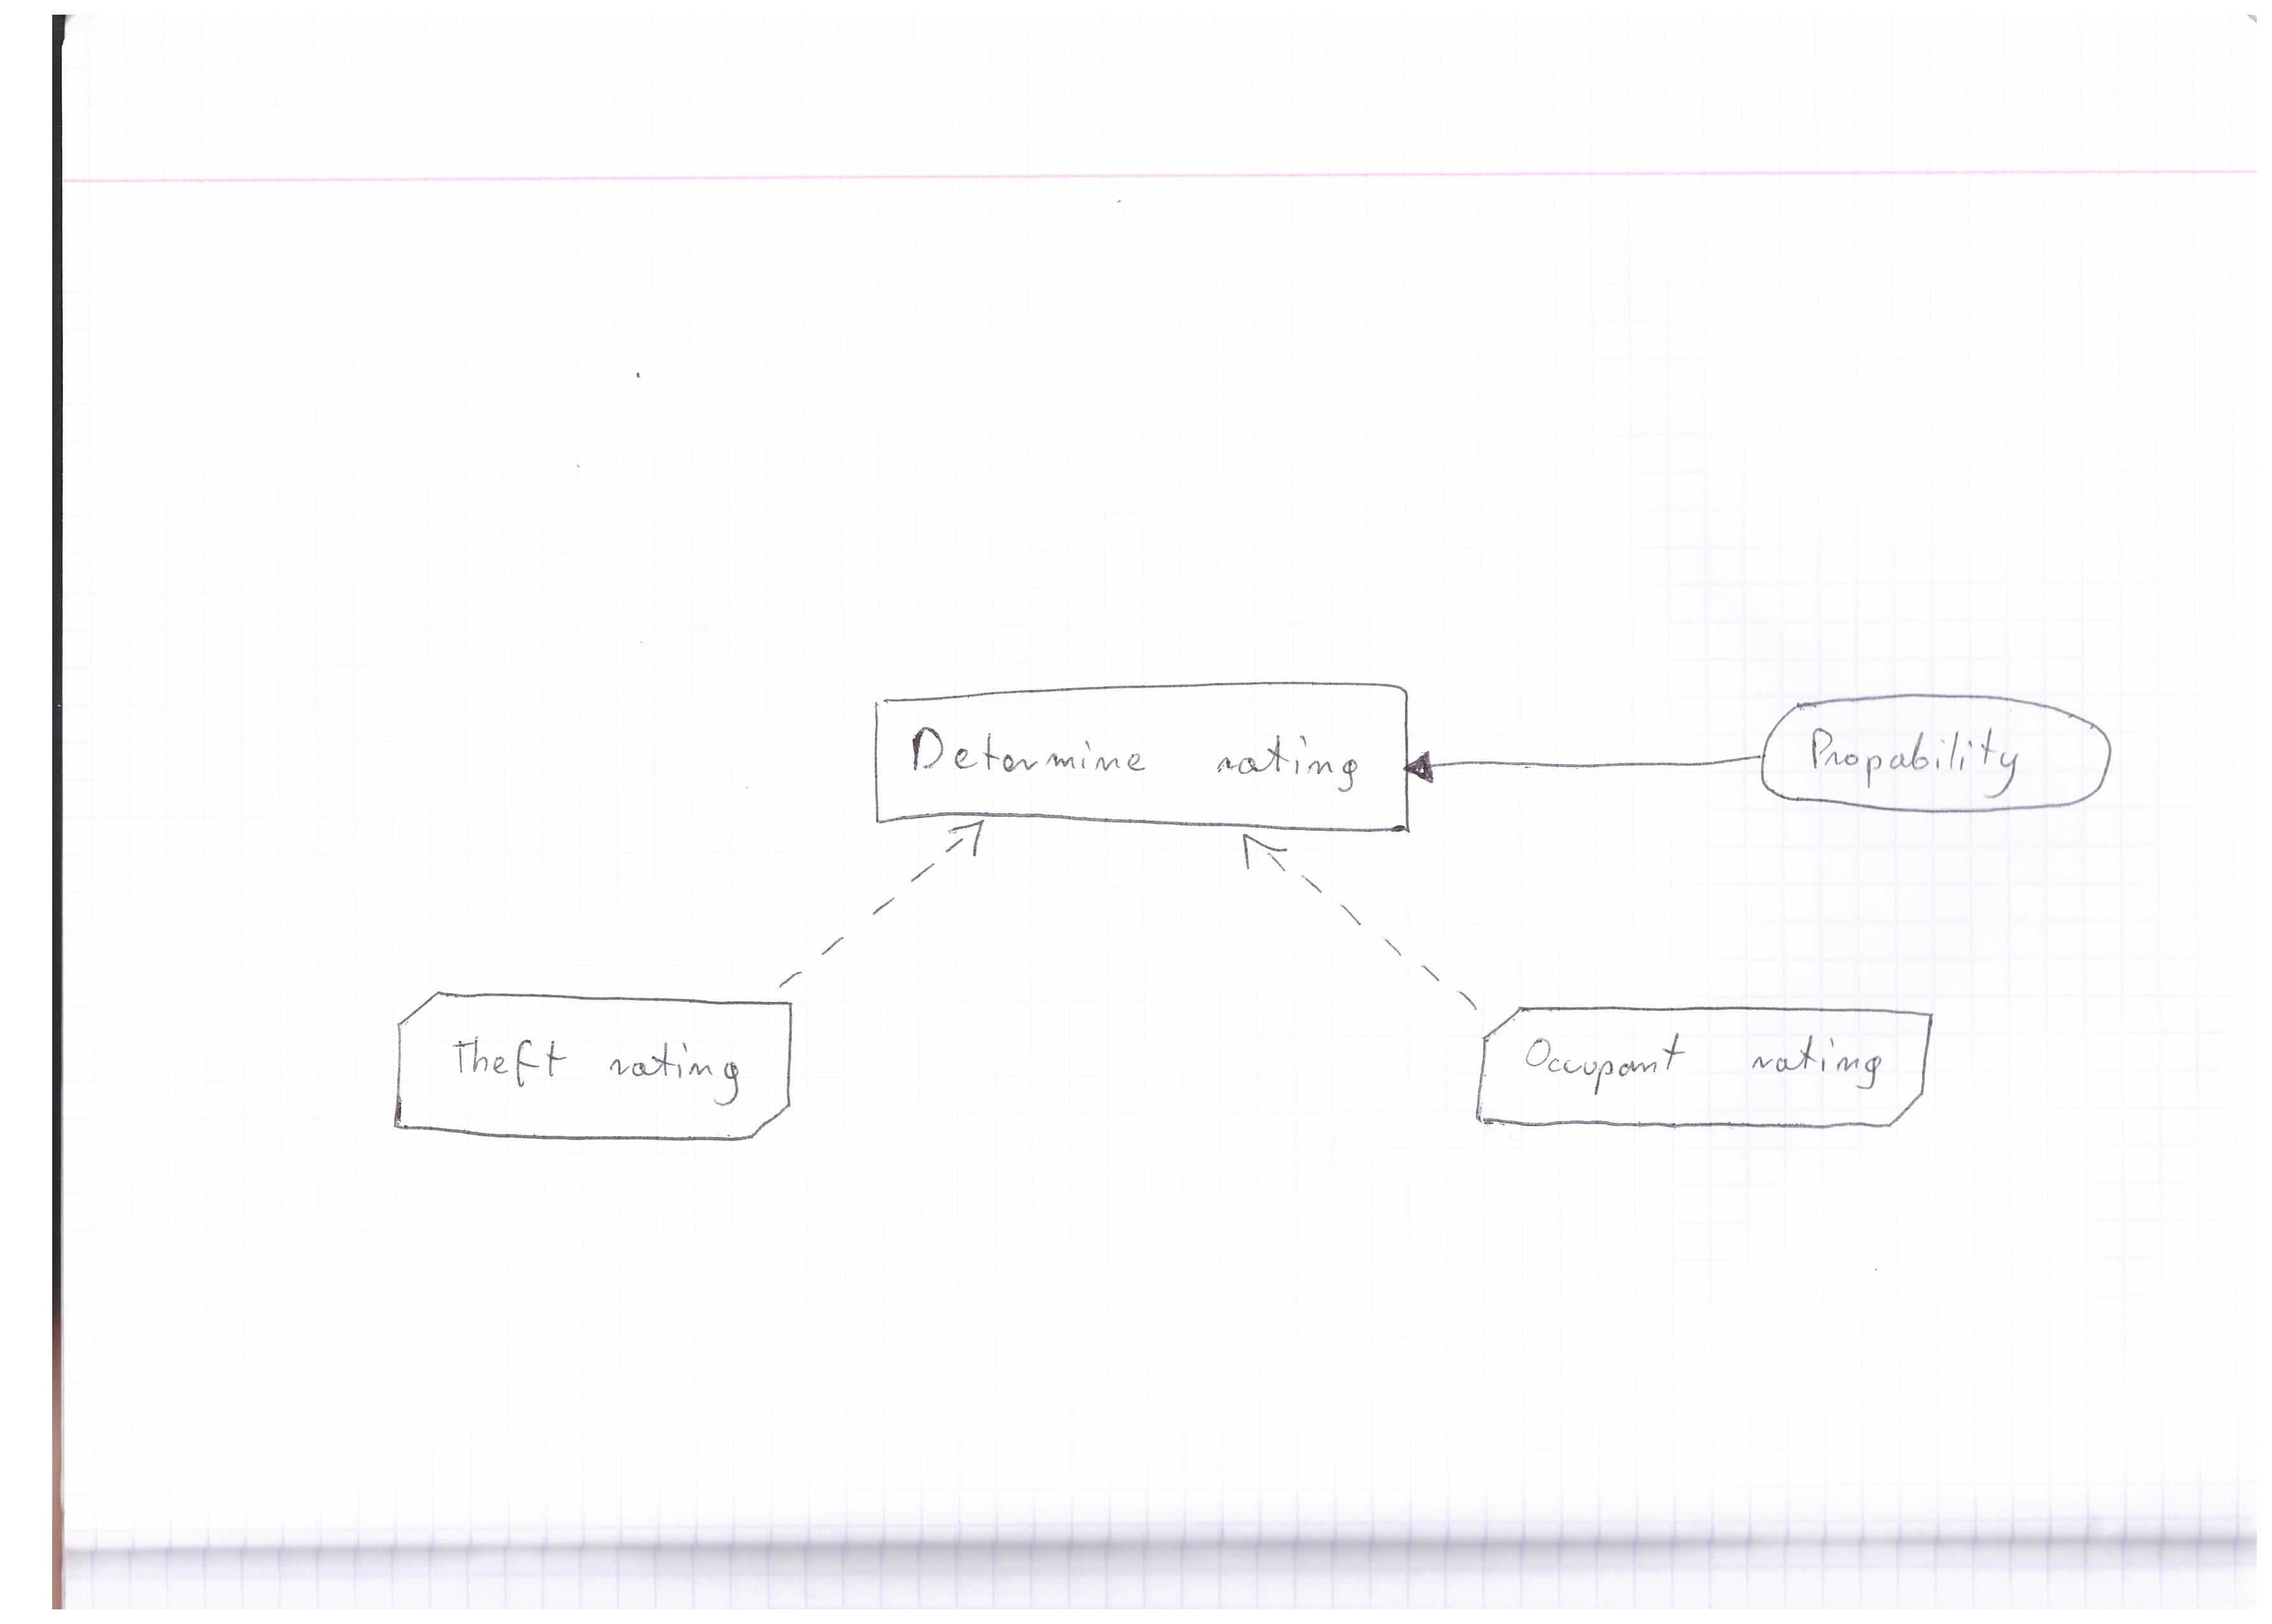 Determine rating
Propability
Theft rating
Occupant rating